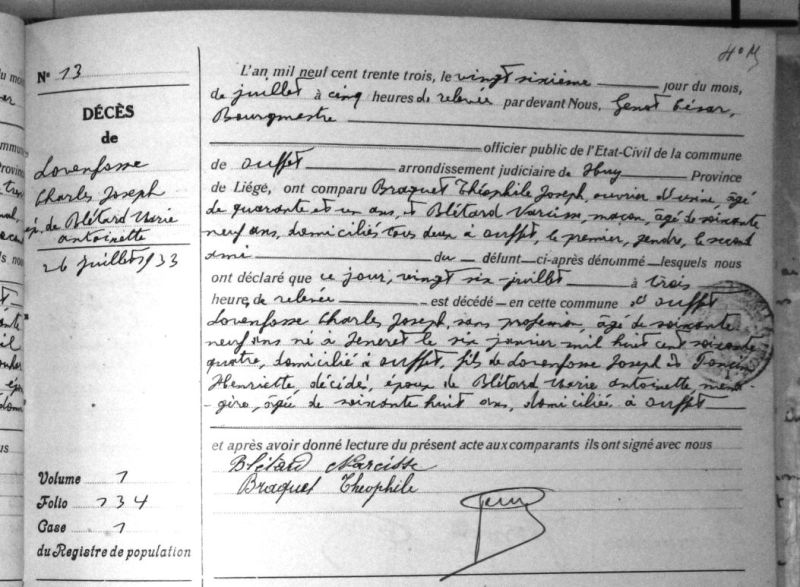 4° M
N° 13
DÉCÈS
de
Lovenfosse
Charles Joseph
ép. de Blétard Marie
antoinette
26 juillet 1933
Volume 1
Folio 134
Case 1
du Registre de population
L'an mil neuf cent trente trois, le vingt sixième jour du mois,
de juillet à cinq heures de relevée par devant Nous, Genot César,
Bourgmestre
officier public de l'Etat-Civil de la commune
de ouffet arrondissement judiciaire de Huy Province
de Liége, ont comparu Braquet Théophile Joseph, ouvrier d'usine, âgé
de quarante et un ans, et Blétard Narcisse, maçon, âgé de soixante
neuf ans, domiciliés tous deux à ouffet, le premier, gendre, le second
ami du défunt ci-après dénommé lesquels nous
ont déclaré que ce jour, vingt six juillet à trois
heures, de relevée est décédé en cette commune d'ouffet
Lovenfosse Charles Joseph, sans profession, âgé de soixante
neuf ans né à Seneret le six janvier mil huit cent soixante
quatre, domicilié à ouffet, fils de Lovenfosse Joseph et
Henriette, décédés, époux de Blétard Marie antoinette ména
-gère, âgée de soixante huit ans, domiciliée à ouffet
et après avoir donné lecture du présent acte aux comparants ils ont signé avec nous
Blétard Narcisse
Braquet Théophile